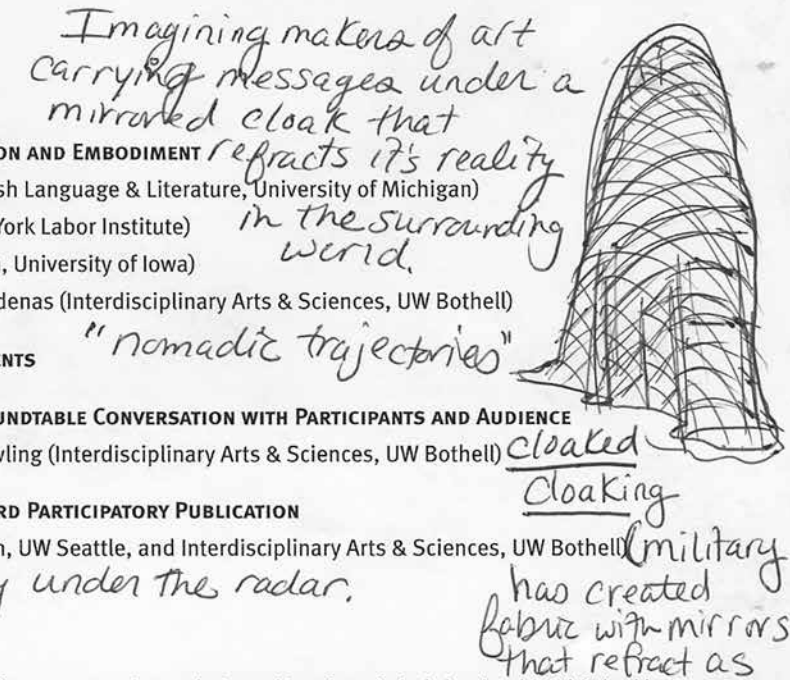 Imagining makers of art
carrying messages under a
mirrored cloak that
ON AND EMBODIMENT refracts it's reality
sh Language & Literature, University of Michigan)
York Labor Institute) in the surrounding
world.
, University of Iowa)
denas (Interdisciplinary Arts & Sciences, UW Bothell)
"nomadic trajectories"
ENTS
UNDTABLE CONVERSATION WITH PARTICIPANTS AND AUDIENCE
wling (Interdisciplinary Arts & Sciences, UW Bothell) cloaked
Cloaking
RD PARTICIPATORY PUBLICATION
n, UW Seattle, and Interdisciplinary Arts & Sciences, UW Bothell) (military
y under the radar.
has created
fabric with mirrors
that refract as